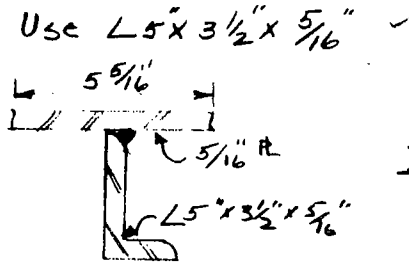 Use ∠5"x 3 1/2"x 5/16" ✓
5 5/16"
5/16" ℄
∠5"x3 1/2"x 5/16"